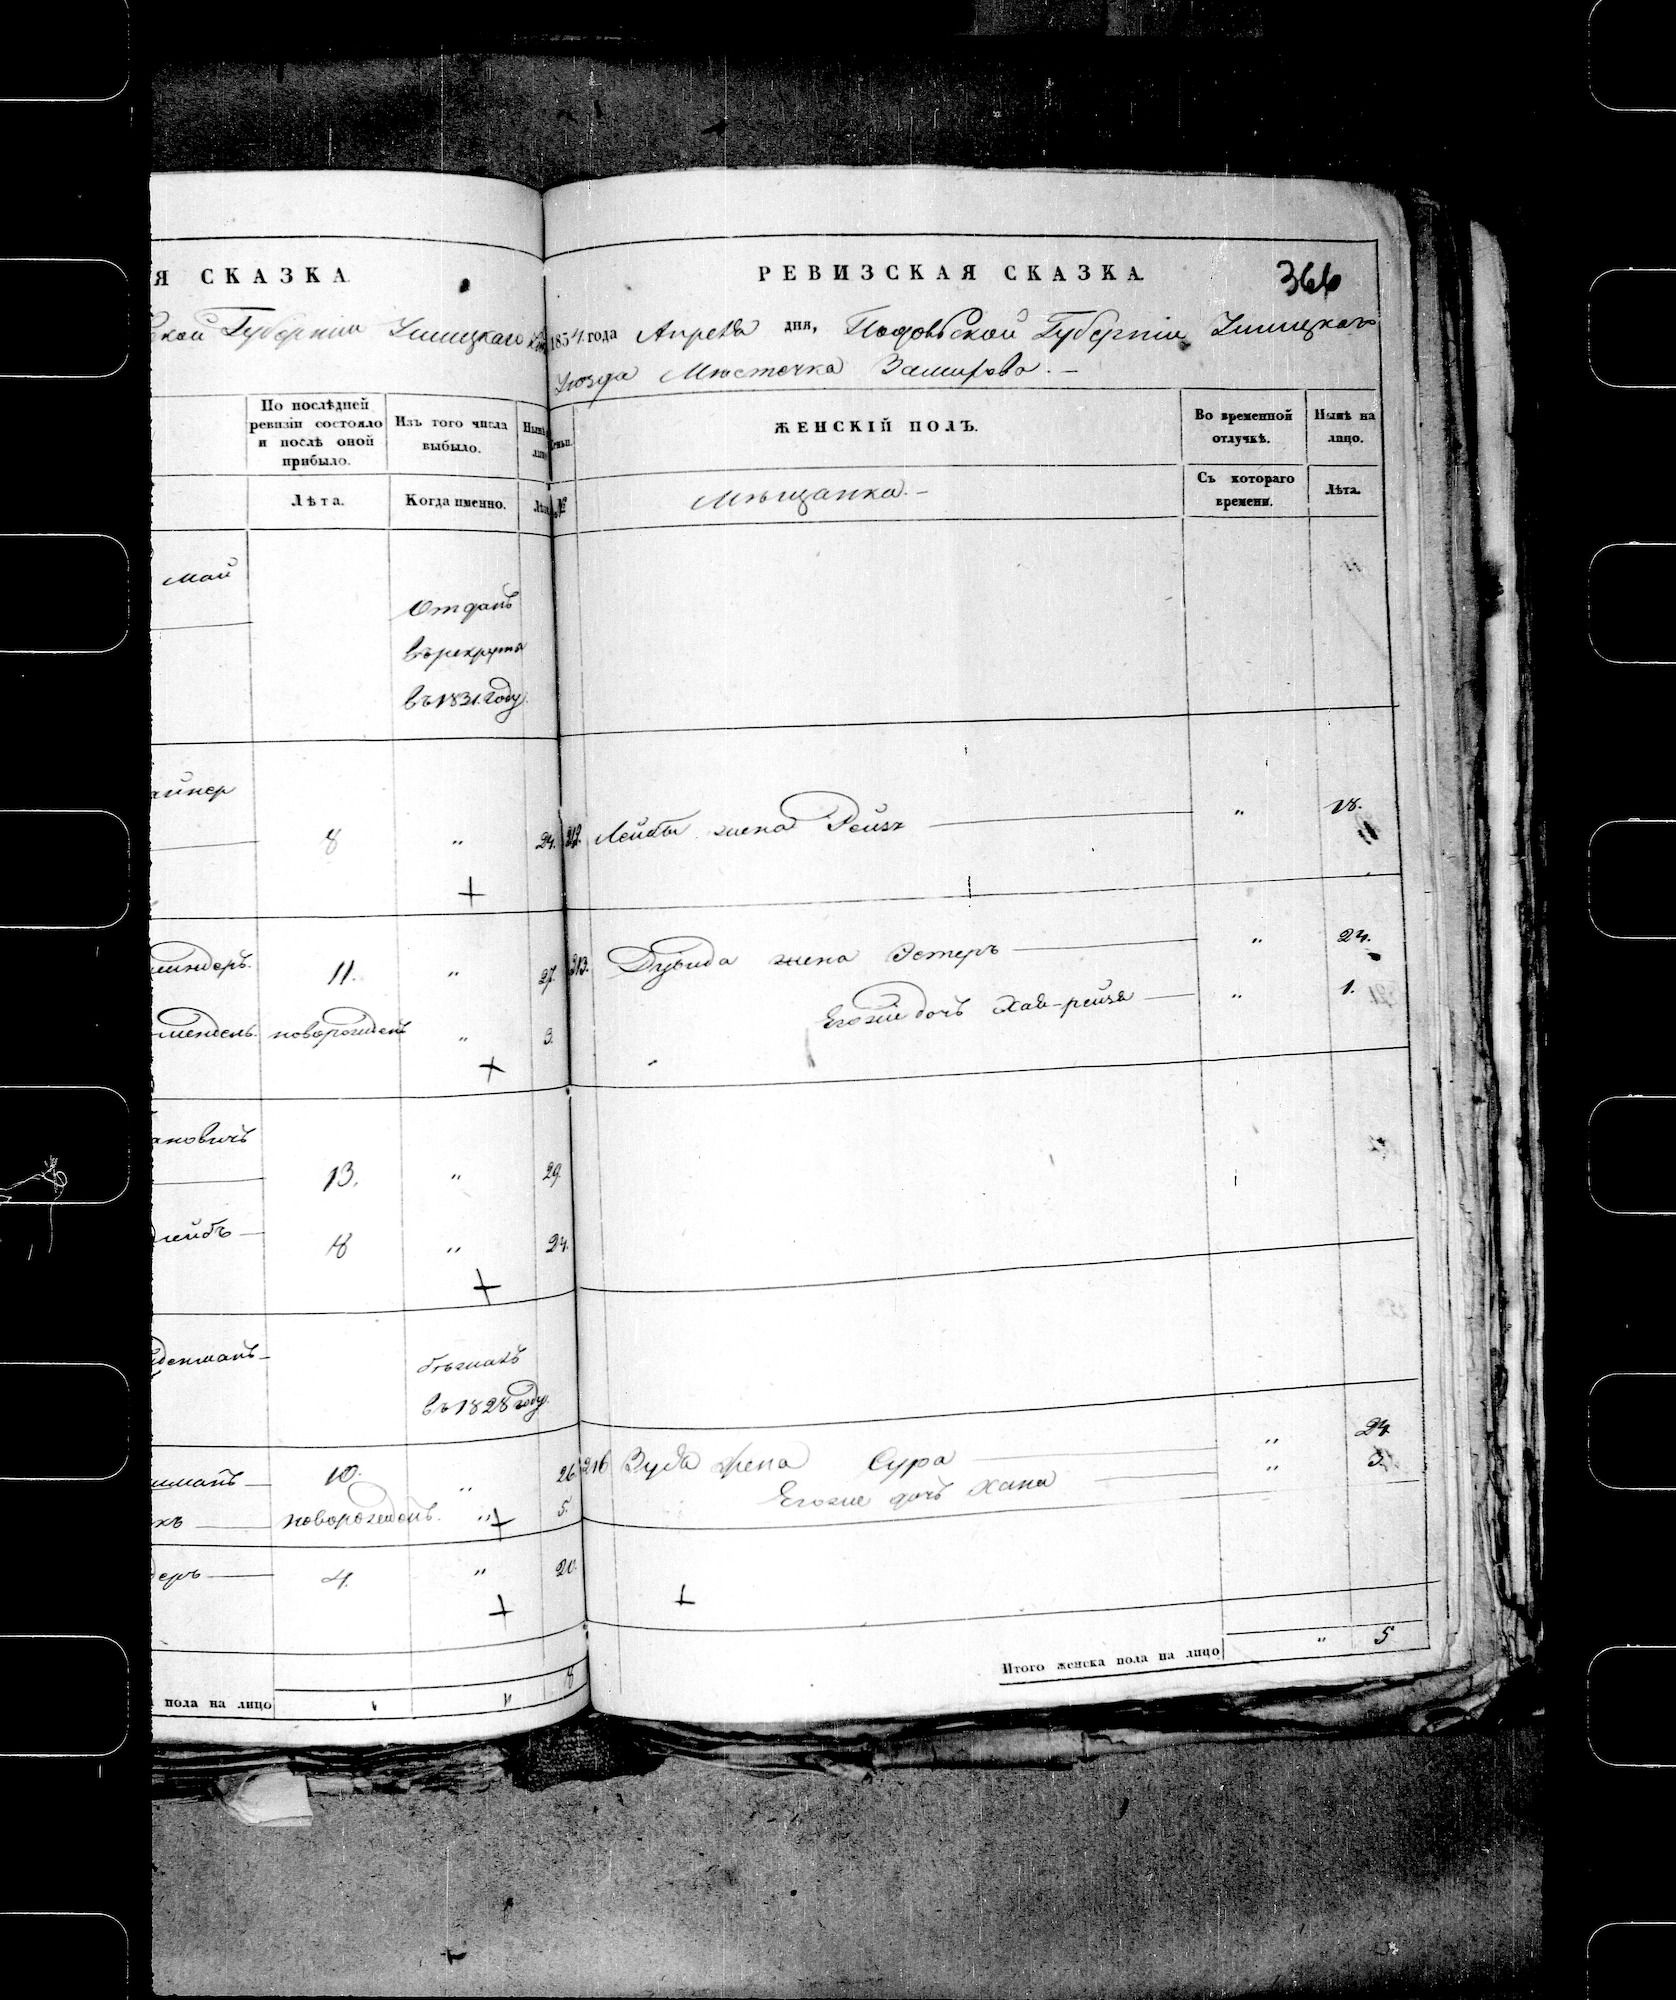 Я СКАЗКА
ской Губернiи Ушицкаго
По послѣдней
ревизiи состояло
и послѣ оной
прибыло.
Изъ того числа
выбыло.
Лѣта.
Когда именно.
май
Отданъ
въ рекруты
въ 1831. году.
айнер
8 " 24.
миндеръ. 11. " 27.
мендель. новорожденъ " 3.
ановичъ
13. " 29.
лейбъ 8 " 24.
денманъ
бѣжалъ
въ 1828 году.
иманъ 10. " 26.
къ новорожденъ. " 5.
деръ 4. " 20.
8
пола на лицо " "
РЕВИЗСКАЯ СКАЗКА.
366
1854. года Апреля дня, Подольской Губернiи Ушицкаго
Уѣзда Мѣстечка Замѣхова.
ЖЕНСКIЙ ПОЛЪ.
Во временной
отлучкѣ.
Нынѣ на
лицо.
№
Мѣщанка.
Съ котораго
времени.
Лѣта.
212. Лейбы жена Рейзя " 18.
213. Дувида жена Эстеръ " 24.
Егоже дочь Хая-рейзя " 1.
216 Зуся жена Сура " 24
Егоже дочь Хана " 3.
Итого женска пола на лицо " 5